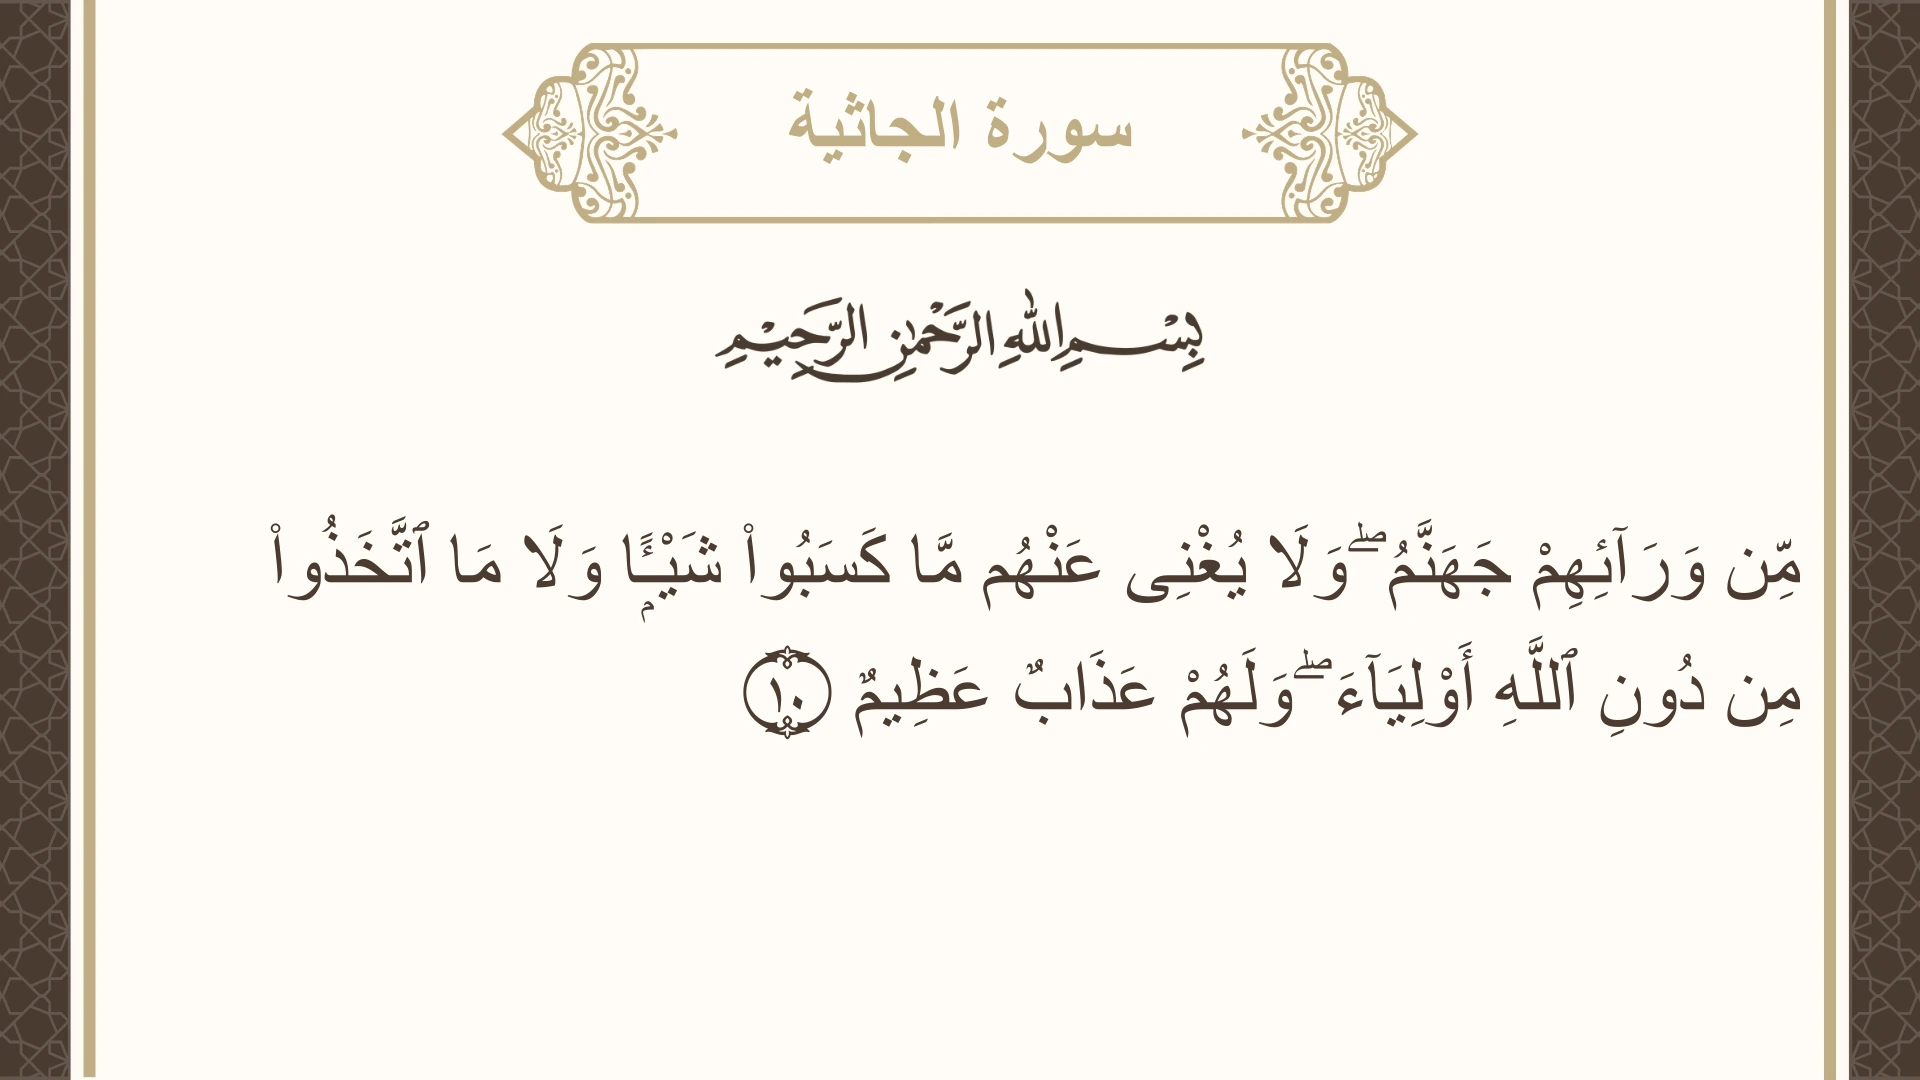 سورة الجاثية
بِسْمِ اللهِ الرَّحْمٰنِ الرَّحِيْمِ
مِّن وَرَآئِهِمْ جَهَنَّمُ ۖ وَلَا يُغْنِى عَنْهُم مَّا كَسَبُوا۟ شَيْـًۭٔا وَلَا مَا ٱتَّخَذُوا۟
مِن دُونِ ٱللَّهِ أَوْلِيَآءَ ۖ وَلَهُمْ عَذَابٌ عَظِيمٌ ۝١٠